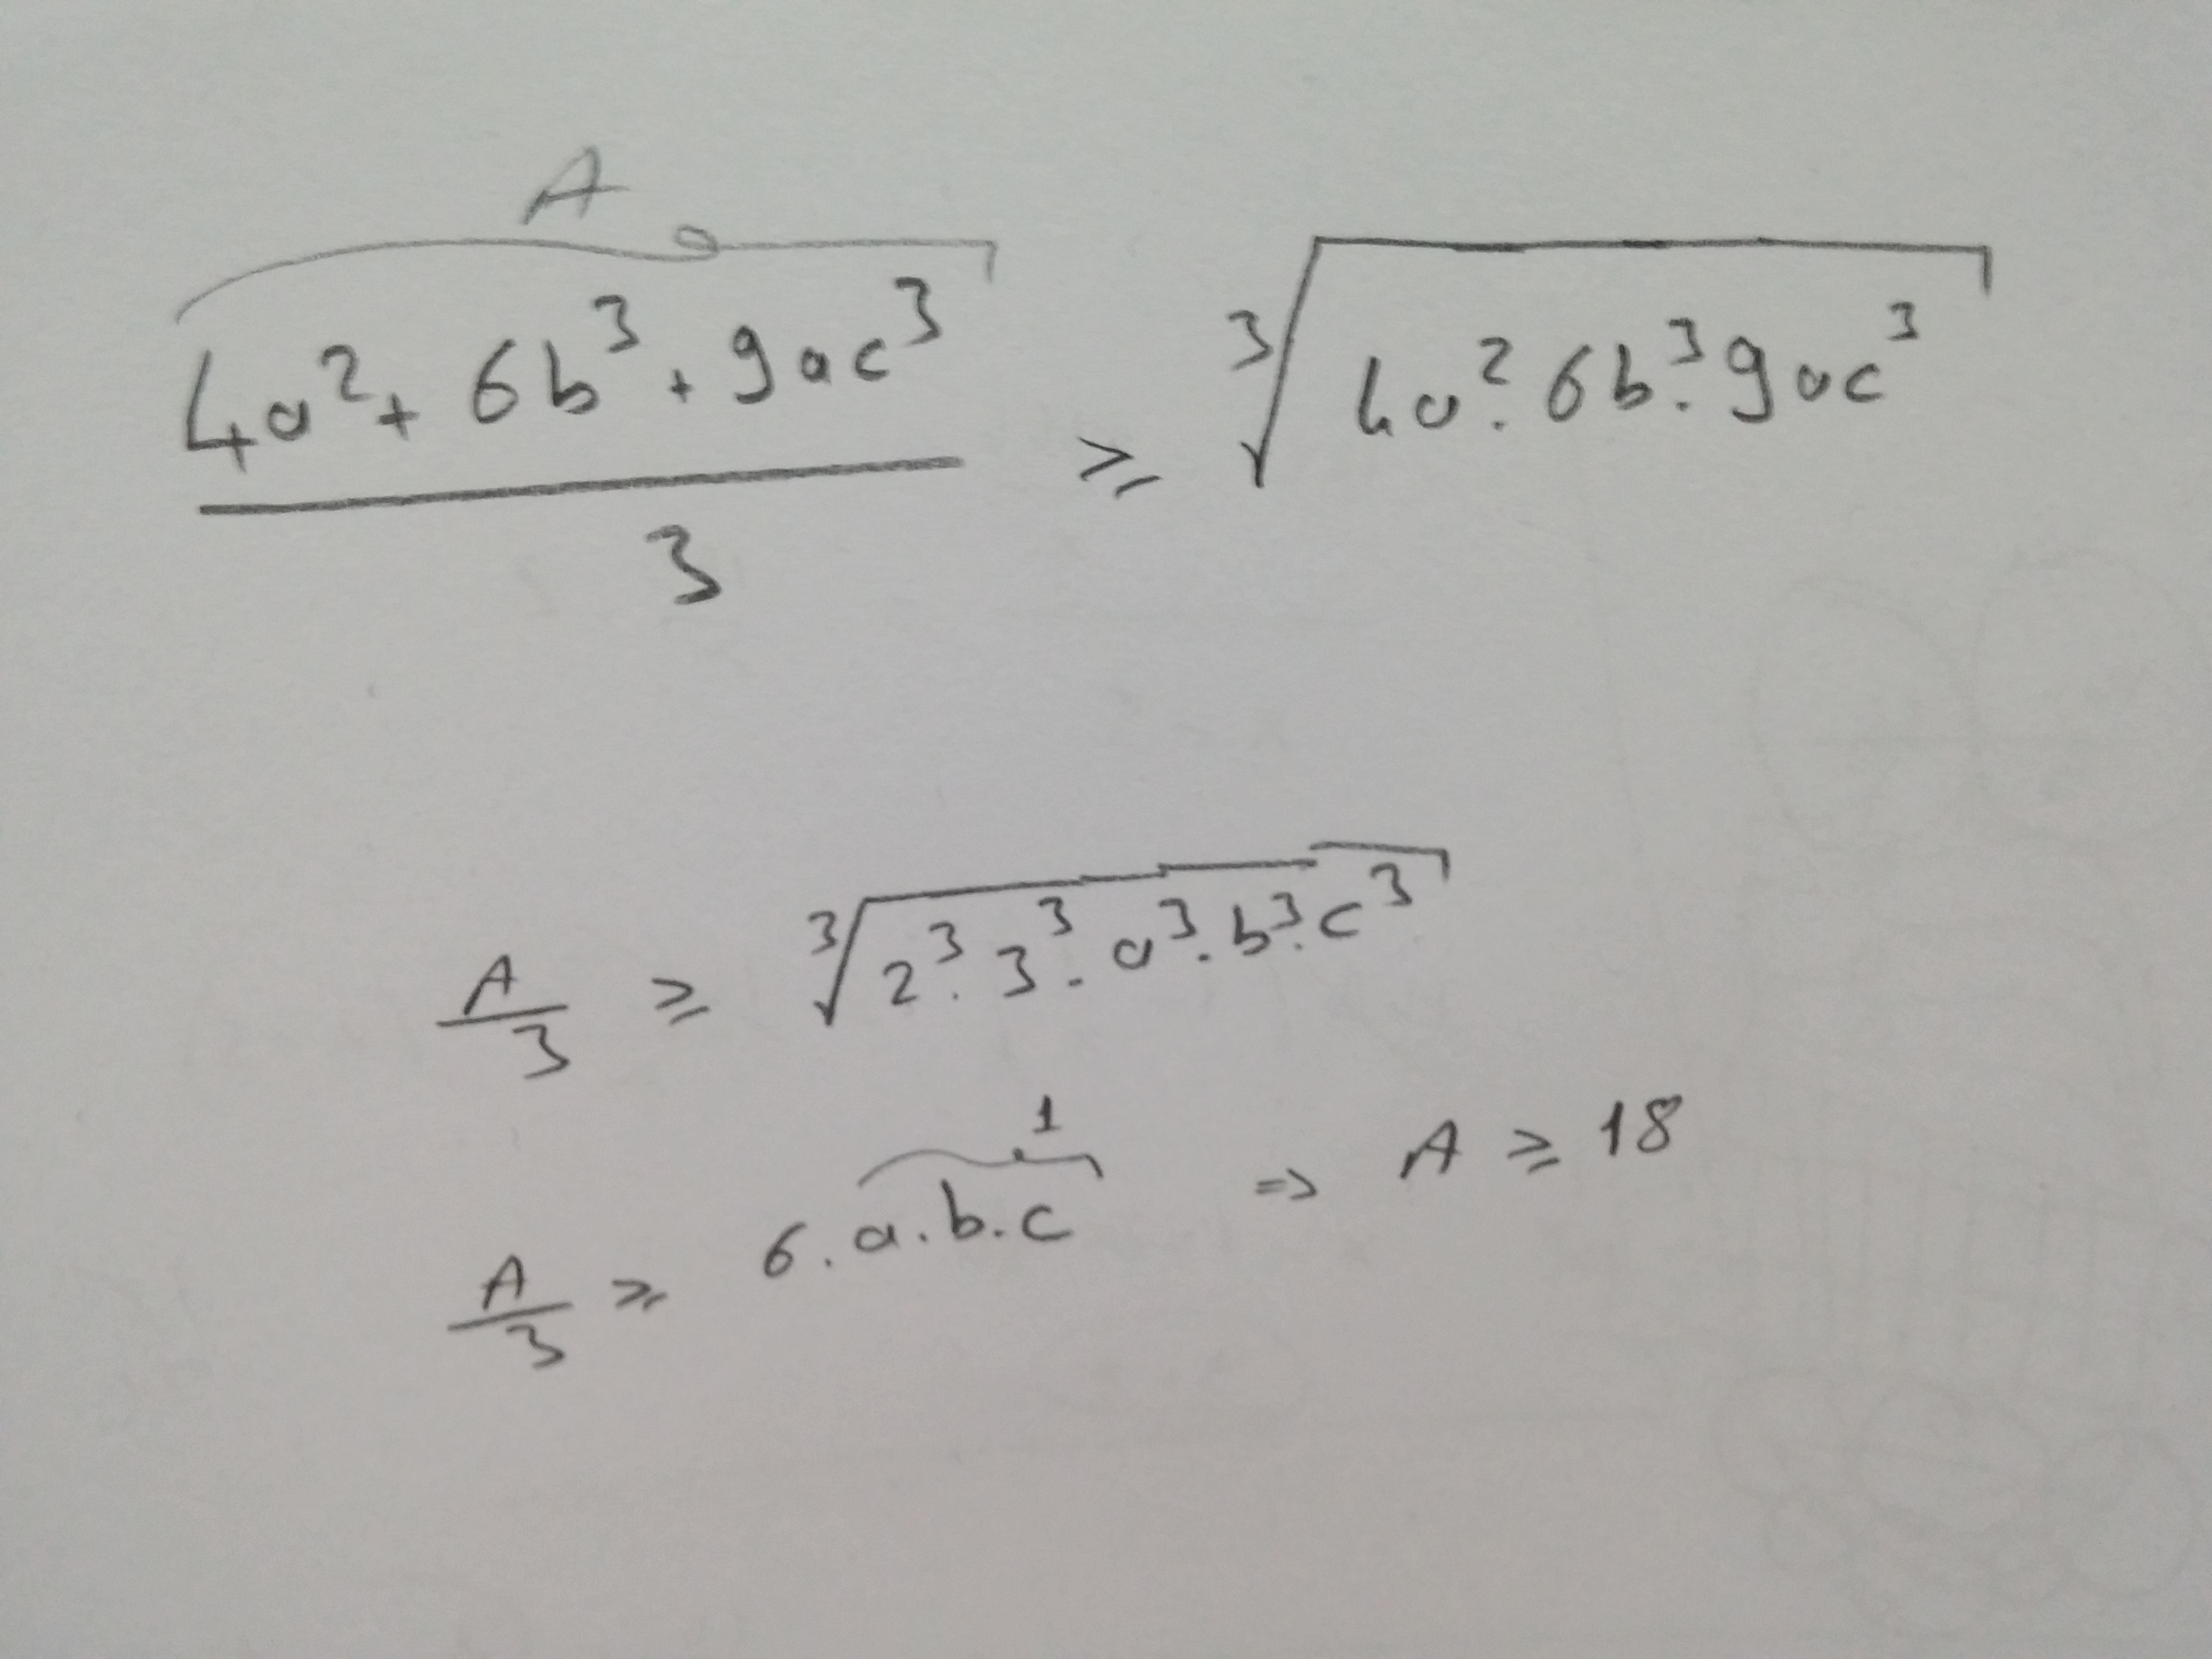 A
4a² + 6b³ + 9ac³
3
≥ ³√4a².6b³.9ac³
A/3 ≥ ³√2³.3³.a³.b³.c³
1
A/3 ≥ 6.a.b.c ⇒ A ≥ 18